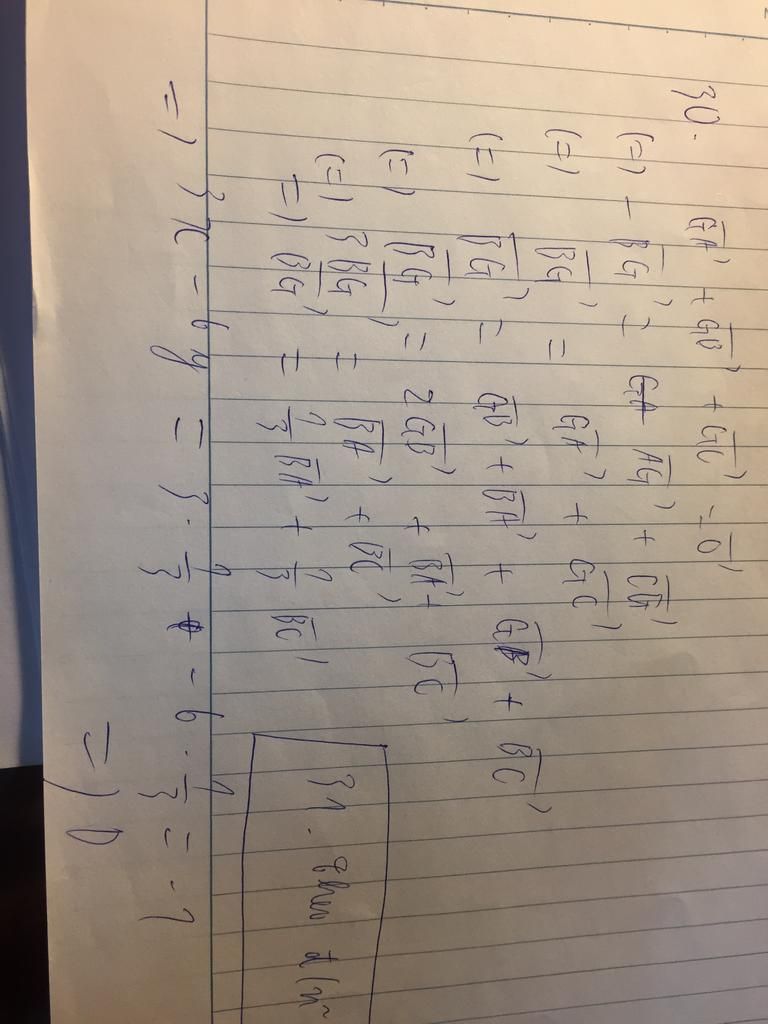 30. GA→ + GB→ + GC→ = 0→
(=) - BG→ = AG→ + CG→
(=) BG→ = GA→ + GC→
(=) BG→ = GB→ + BA→ + GB→ + BC→
(=) BG→ = 2GB→ + BA→ + BC→
(=) 3BG→ = BA→ + BC→
=) BG→ = 1/3 BA→ + 1/3 BC→
=) 3x - 6y = 3 . 1/3 - 6 . 1/3 = -1
=) D
31.